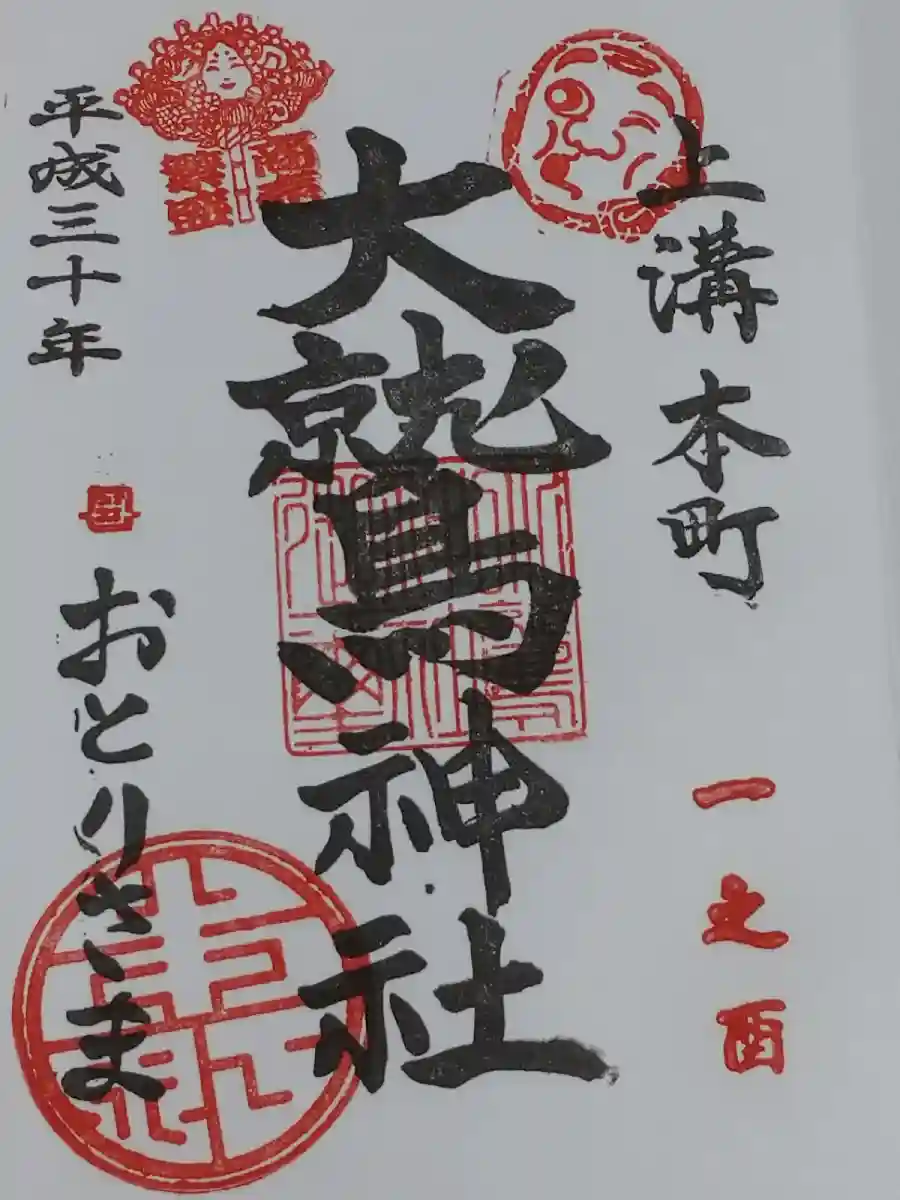 上溝本町
一之酉
大鷲神社
平成三十年
おとりさま